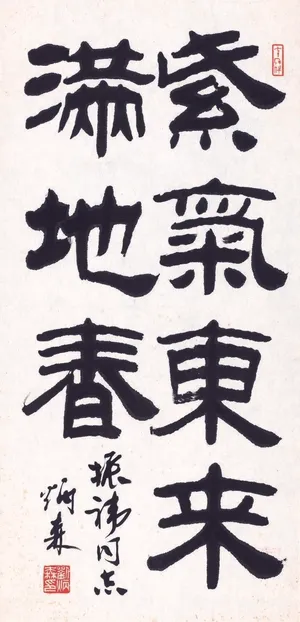 紫氣東来
满地春
振禕同志
炳森